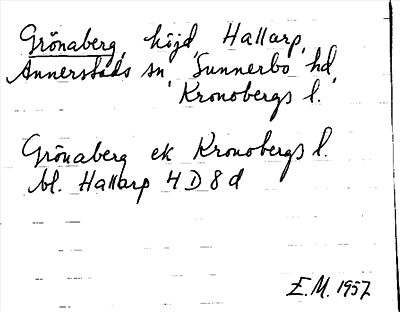 Grönaberg, höjd, Hallarp,
Annerstads sn, Sunnerbo hd,
Kronobergs l.
Grönaberg ek Kronobergs l.
bl. Hallarp 4 D 8 d
E.M. 1957